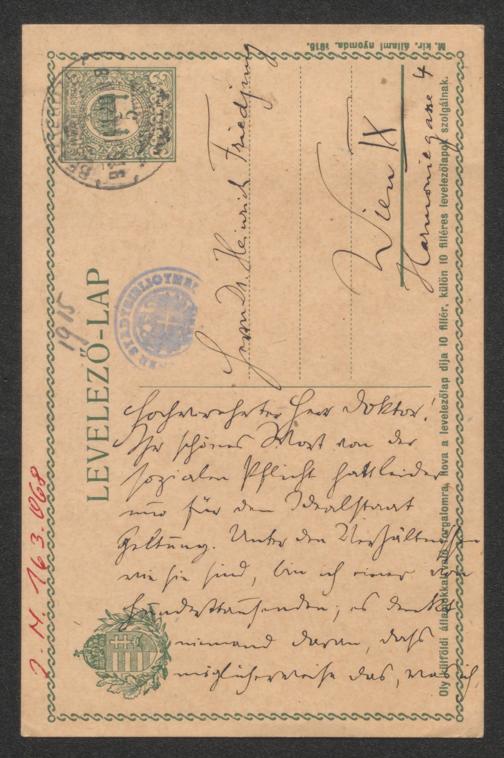 M. kir. állami nyomda. 1915.
LEVELEZŐ-LAP
1915
J. N. 163.068
Herrn Dr. Heinrich Friedjung
Wien IX
Harmoniegasse 4
Hochverehrter Herr Doktor!
Ihr schönes Wort von der
sozialen Pflicht hat leider
nur für den Idealstaat
Geltung. Unter den Verhältnissen
wie sie sind, bin ich einer von
Hunderttausenden; es denkt
niemand daran, dass
möglicherweise das, was ich
Oly külföldi államokkal való forgalomra, hova a levelezőlap dija 10 fillér, külön 10 filléres levelezőlapok szolgálnak.